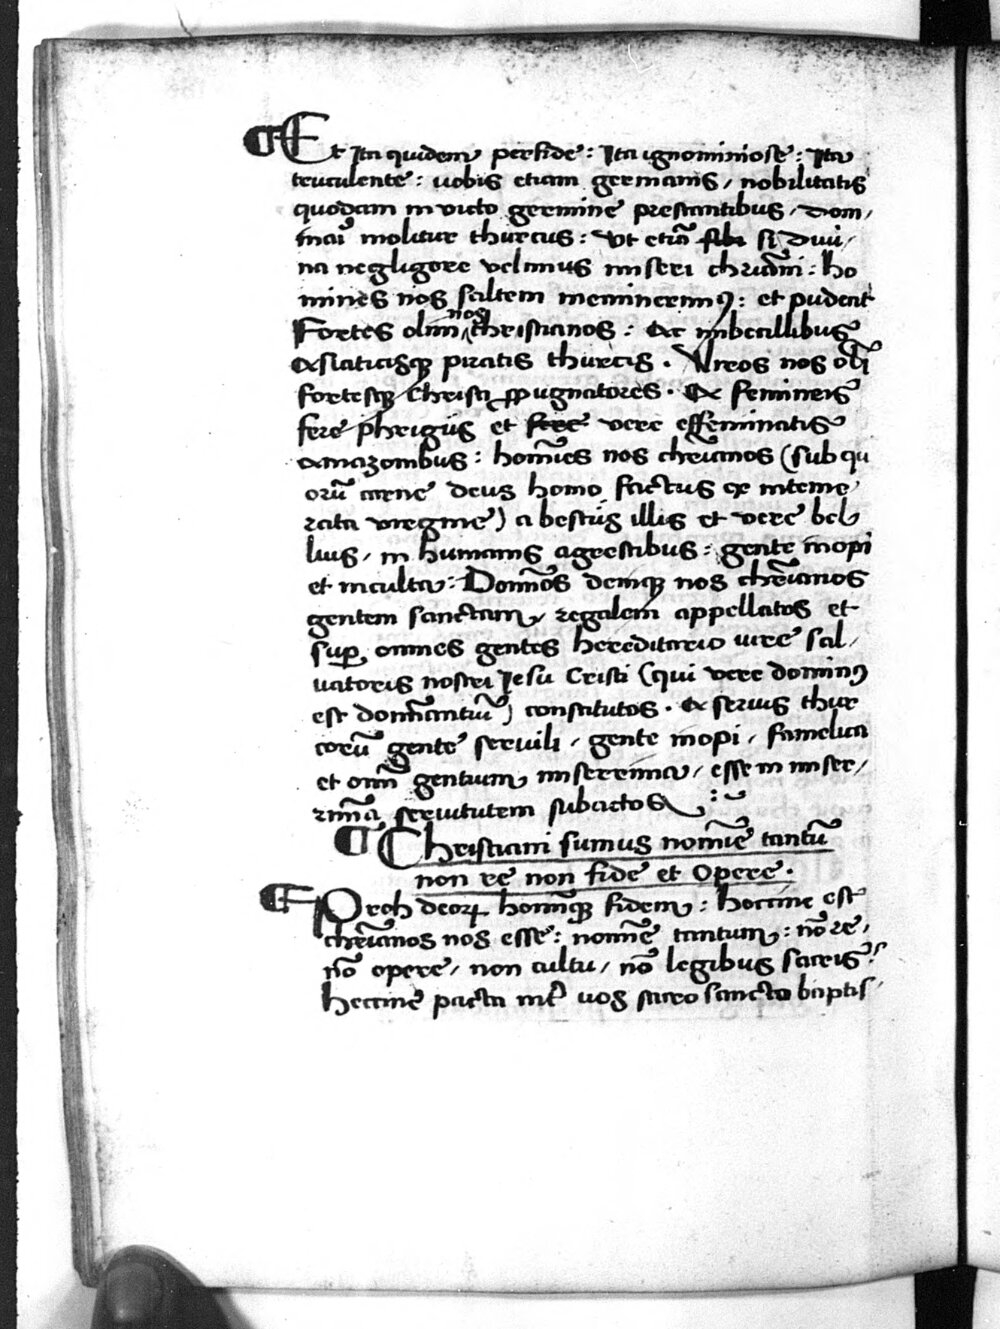 ¶ Et ita quidem perfide: Ita ignominiose: Ita
truculente: uobis etiam germanis / nobilitatis
quodam inuicto germine prestantibus / Dom/
inari molitur thurcus: Vt etiā si Diui/
na negligere velimus miseri chriani: ho
mines nos saltem meminerimꝰ: et pudeat
Fortes olim nos christianos: Ac imbecillibus
Asiaticisqꝫ piratis thurcis. Viros nos oli
fortesqꝫ Christi ꝓpugnatores. Ac femineis
fere phrigiis et vere effeminatis
amazonibus: homīes nos chrīanos (sub qu
orū carne deus homo factus ex inteme
rata virgine) a bestiis illis et vere bel
luis / in humanis agrestibus: gente inopi
et inculta: Dominōs deniqꝫ nos chrīanos
gentem sanctam / regalem appellatos et
suꝑ omnes gentes hereditario iure sal/
uatoris nostri Jesu Cristi (qui vere dominꝰ
est dominantiū) constitutos. Ac seruis thur
corū gente seruili / gente inopi / famelica
et omī gentium miserrima / esse in miser/
rimā seruitutem subactos :~
¶ Christiani sumus nomīe tantū
non re non fide et Opere.
¶ Proh deoꝝ hominūqꝫ fidem: hoccine est
chrīanos nos esse: nomīe tantum: nō re /
nō opere / non cultu / nō legibus sacris?
heccine pacta inter uos sacro sancto baptis/